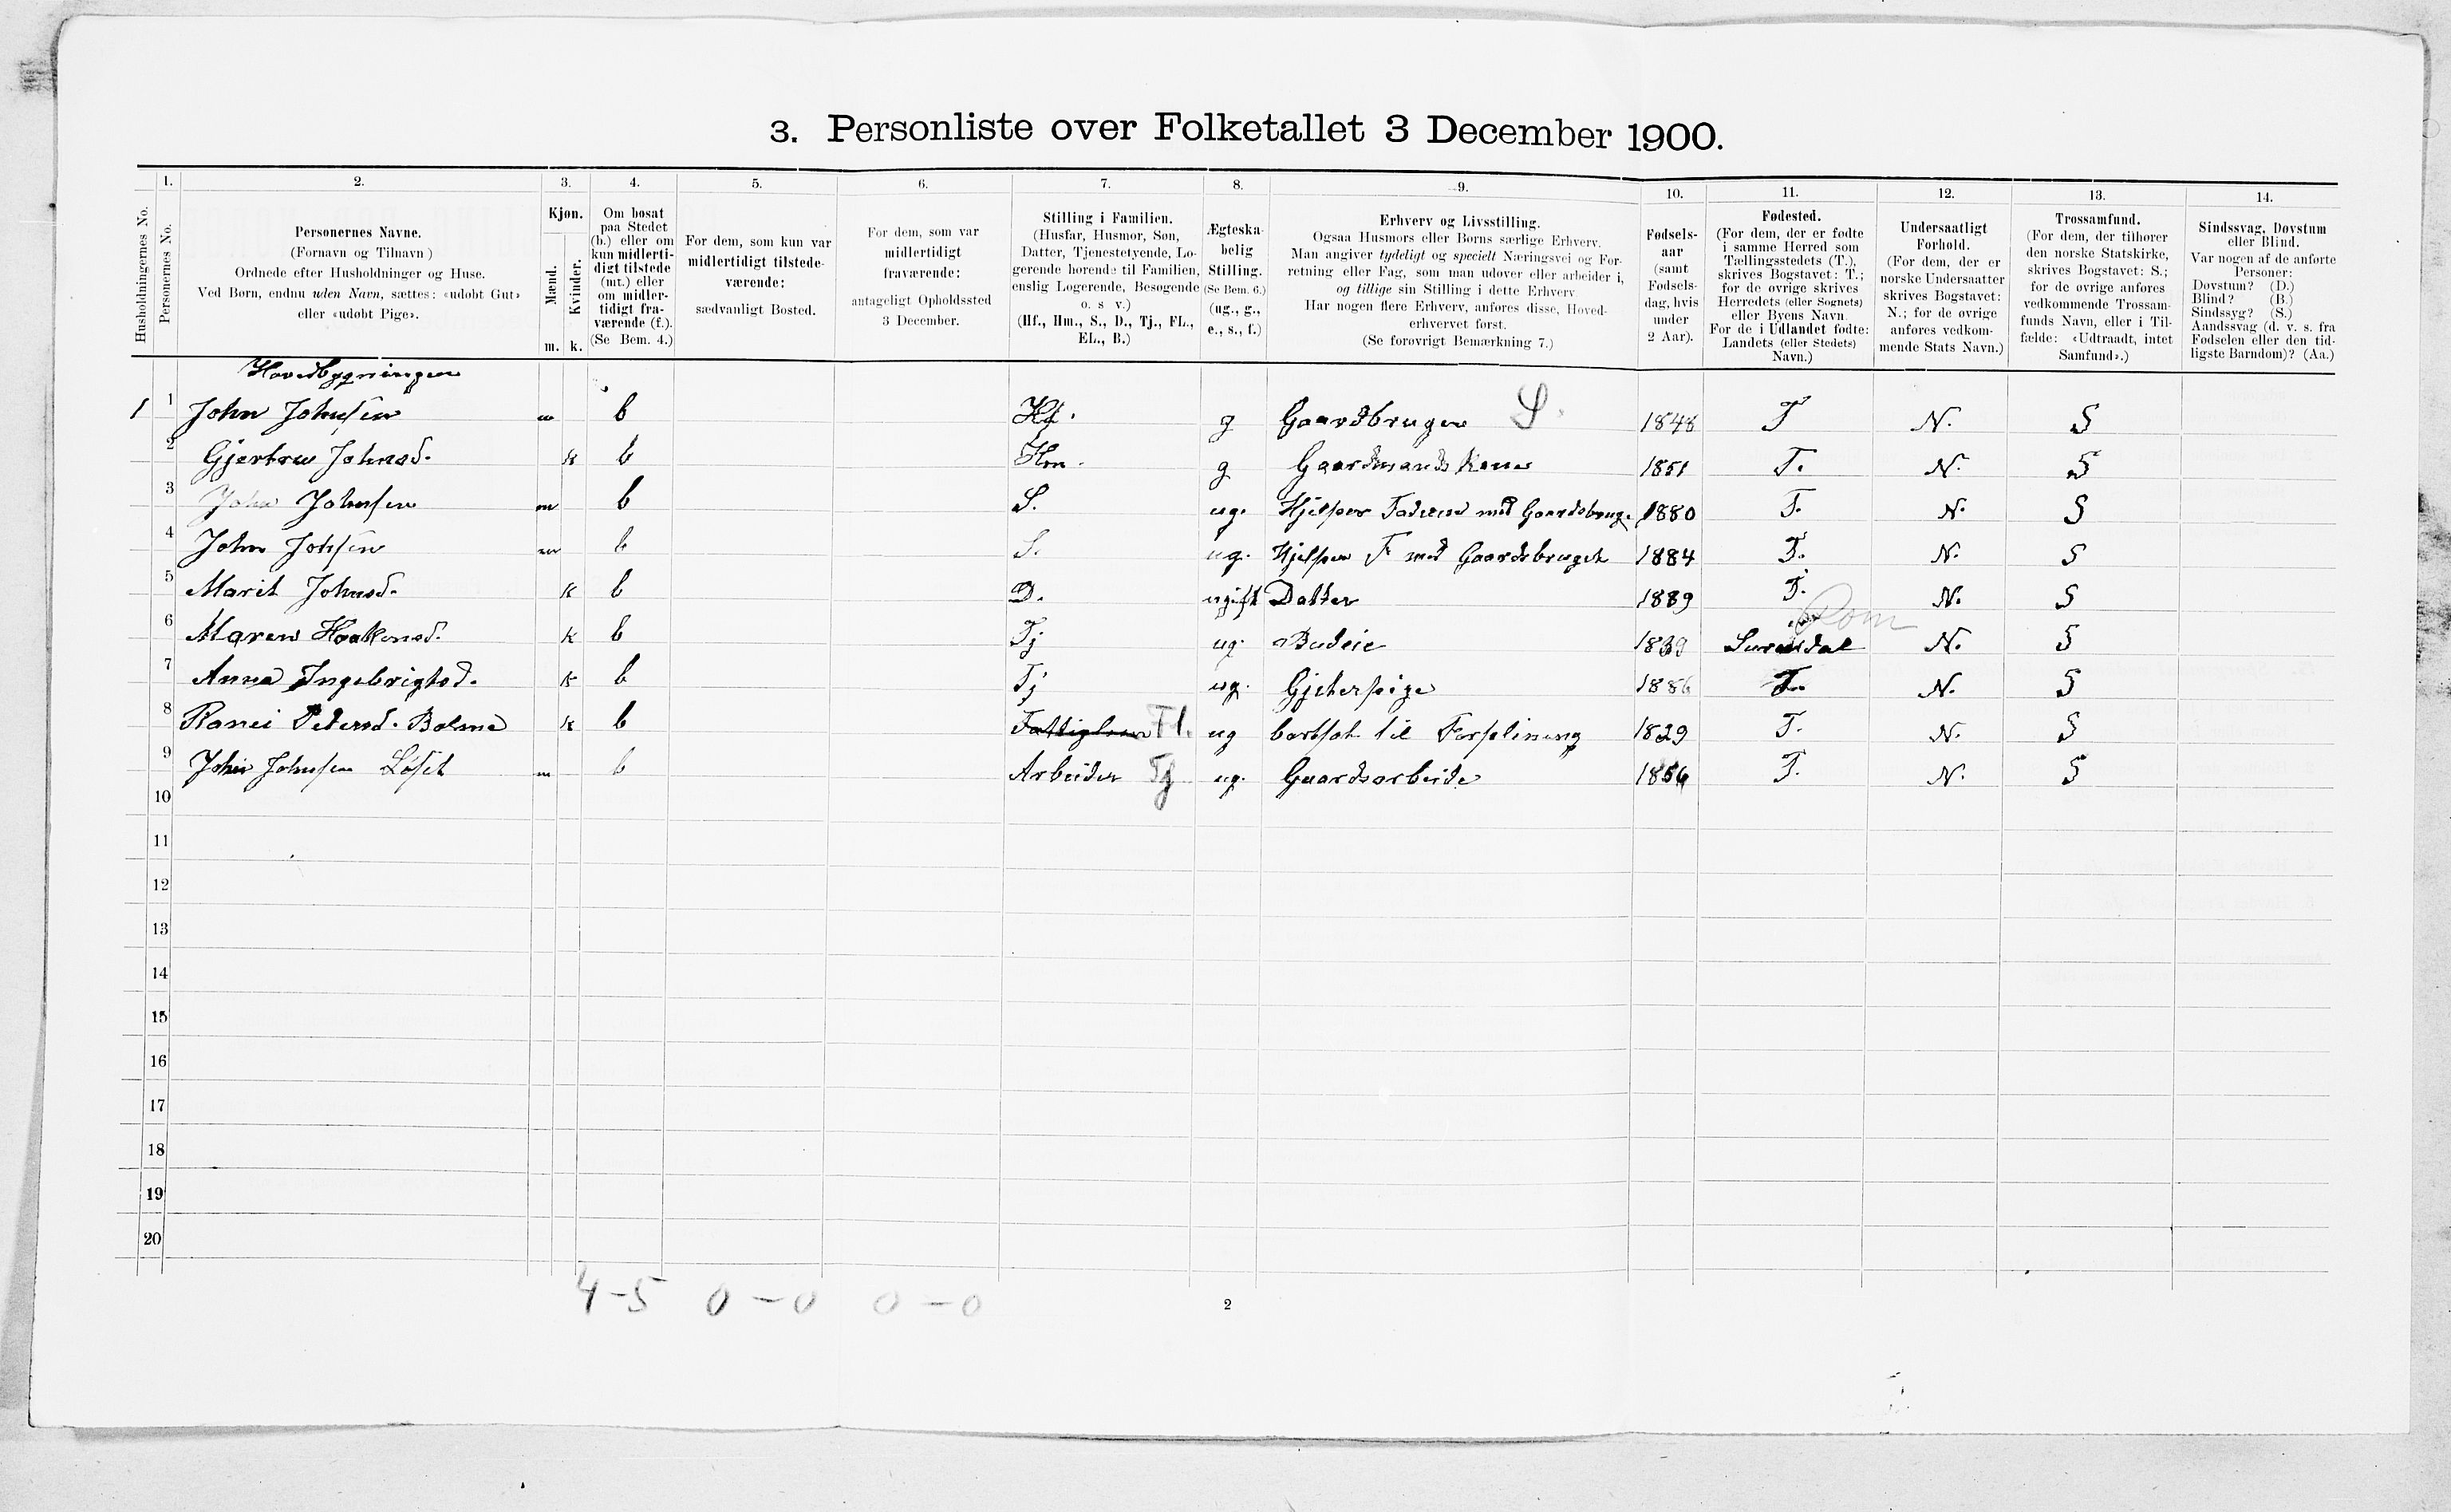 3. Personliste over Folketallet 3 December 1900.
1. 2. 3. 4. 5. 6. 7. 8. 9. 10. 11. 12. 13. 14.
Husholdningernes No.
Personernes No.
Personernes Navne.
(Fornavn og Tilnavn)
Ordnede efter Husholdninger og Huse.
Ved Børn, endnu uden Navn, sættes: «udøbt Gut»
eller «udøbt Pige».
Kjøn.
Mænd.
Kvinder.
m. k.
Om bosat
paa Stedet
(b.) eller om
kun midlerti-
digt tilstede
(mt.) eller
om midler-
tidigt fra-
værende (f.).
(Se Bem. 4.)
For dem, som kun var
midlertidigt tilstede-
værende:
sædvanligt Bosted.
For dem, som var
midlertidigt
fraværende:
antageligt Opholdssted
3 December.
Stilling i Familien.
(Husfar, Husmor, Søn,
Datter, Tjenestetyende, Lo-
gerende hørende til Familien,
enslig Logerende, Besøgende
o. s v.)
(Hf., Hm., S., D., Tj., FL.,
EL., B.)
Ægteska-
belig
Stilling.
(Se Bem. 6.)
(ug., g.,
e., s., f.)
Erhverv og Livsstilling.
Ogsaa Husmors eller Børns særlige Erhverv.
Man angiver tydeligt og specielt Næringsvei og For-
retning eller Fag, som man udøver eller arbeider i,
og tillige sin Stilling i dette Erhverv.
Har nogen flere Erhverv, anføres disse, Hoved-
erhvervet først.
(Se forøvrigt Bemærkning 7.)
Fødsels-
aar
(samt
Fødsels-
dag, hvis
under
2 Aar).
Fødested.
(For dem, der er fødte
i samme Herred som
Tællingsstedets (T.),
skrives Bogstavet: T.;
for de øvrige skrives
Herredets (eller Sognets)
eller Byens Navn.
For de i Udlandet fødte:
Landets (eller Stedets)
Navn.)
Undersaatligt
Forhold.
(For dem, der er
norske Undersaatter
skrives Bogstavet:
N.; for de øvrige
anføres vedkom-
mende Stats Navn.)
Trossamfund.
(For dem, der tilhører
den norske Statskirke,
skrives Bogstavet: S.;
for de øvrige anføres
vedkommende Trossam-
funds Navn, eller i Til-
fælde: «Udtraadt, intet
Samfund».)
Sindssvag, Døvstum
eller Blind.
Var nogen af de anførte
Personer:
Døvstum? (D.)
Blind? (B.)
Sindssyg? (S.)
Aandssvag (d. v. s. fra
Fødselen eller den tid-
ligste Barndom)? (Aa.)
Hovedbygningen
1 1 John Johnsen m b Hf. g Gaardbruger S. 1848 T N. S
2 Gjertru Johnsd. k b Hm. g Gaardmands Kone 1851 T. N. S
3 John Johnsen m b S. ug. Hjelper Faderen med Gaardsbrug. 1880 T. N. S
4 John Johnsen m b S. ug. Hjelper F med Gaardsbruget 1884 T. N. S
5 Marit Johnsd. k b D. ugift Datter 1889 T. N. S
6 Maren Haakensd. k b Tj ug. Budeie 1839 Surendal Rom N. S
7 Anna Ingebrigtsd. k b Tj ug. Gjeterpige 1886 T. N. S
8 Pedersd. Bolme k b Fl. ug bortsat til Forpleining 1829 T. N. S
9 John Johnsen Løset m b Arbeider Tj ug. Gaardsarbeide 1856 T. N. S
10
11
12
13
14
15
16
17
18
19
20
4-5 0-0 0-0
2